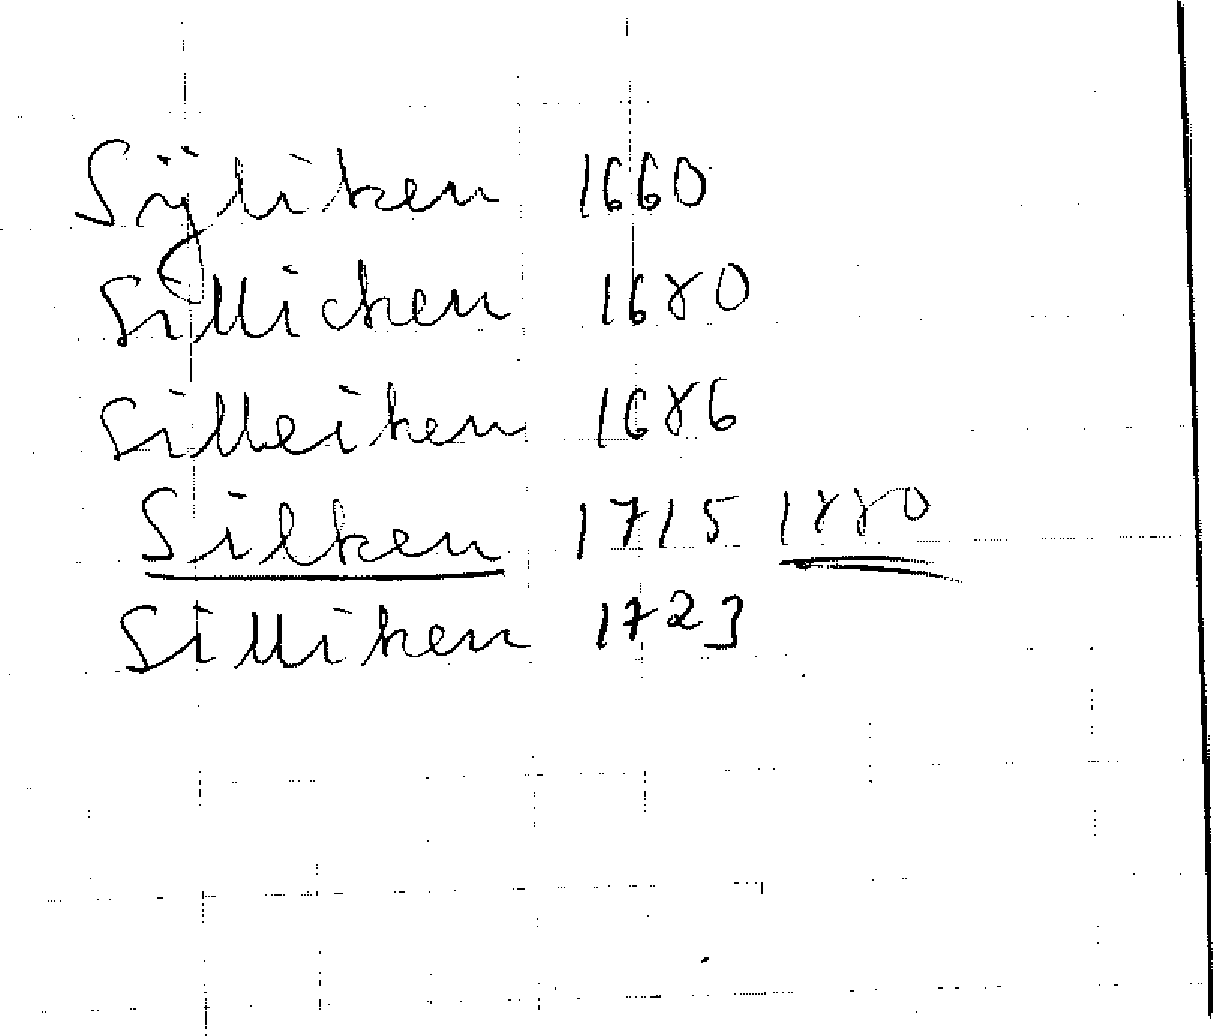 Sÿliken 1660
Sillicken 1680
Silleiken 1686
Silken 1715 1880
Silliken 1723